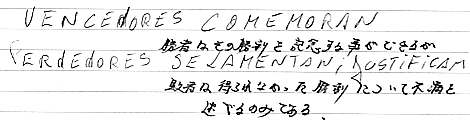 VENCEdORES COMEMORAN
勝者はその勝利を記念する事ができるが
PERdEDORES SE LAMENTAN, JUSTIFICAM
敗者は得られなかった勝利について不満を
述べるのみである.